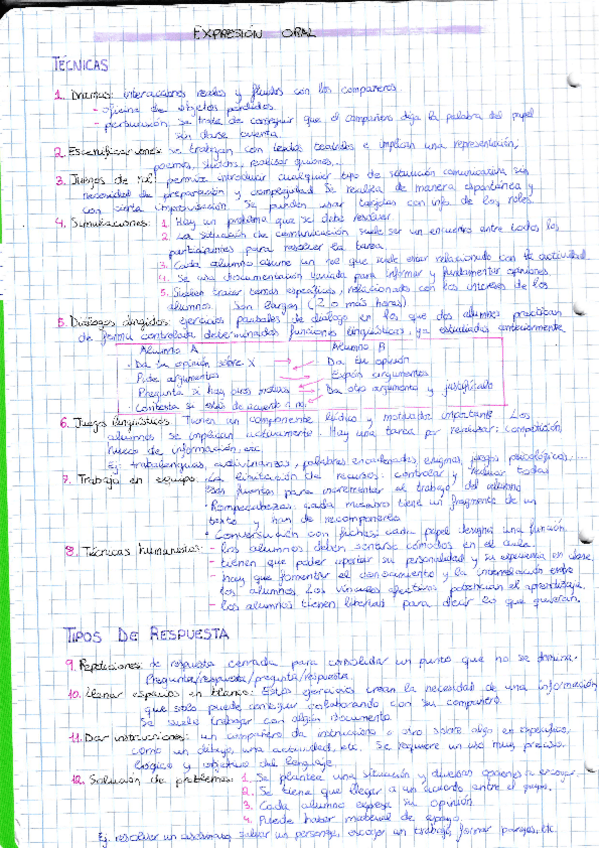 EXPRESIÓN ORAL
TÉCNICAS
1. Dramas: interacciones reales y fluidas con los compañeros.
- oficina de objetos perdidos
- persuasión se trata de conseguir que el compañero deja la palabra del papel
sin darse cuenta.
2. Escenificaciones: se trabajan con textos teatrales e implican una representación;
poemas, sketchs, realizar guiones...
3. Juegos de rol: permite introducir cualquier tipo de situación comunicativa sin
necesidad de preparación y complejidad. Se realiza de manera espontánea y
con cierta improvisación. Se pueden usar tarjetas con info de los roles
4. Simulaciones: 1. Hay un problema que se debe resolver
2. La situación de comunicación suele ser un encuentro entre todos los
participantes para resolver la tarea
3. Cada alumno asume un rol que suele estar relacionado con la actividad
4. Se usa documentación variada para informar y fundamentar opiniones
5. Suelen tratar temas específicos, relacionados con los intereses de los
alumnos. Son largas (2 o más horas)
5. Diálogos dirigidos: ejercicios pautados de diálogo en los que dos alumnos practican
de forma controlada determinadas funciones lingüísticas, ya estudiadas anteriormente
Alumno A Alumno B
· Da su opinión sobre X Da tu opinión
Pide argumentos Expón argumentos
Pregunta si hay otros motivos Da otro argumento y justifícalo
· Contesta si estás de acuerdo o no.
6. Juegos lingüísticos: Tienen un componente lúdico y motivador importante. Los
alumnos se implican activamente. Hay una tarea por realizar: competición,
hueco de información, etc
Ej: trabalenguas, adivinanzas, palabras encadenadas, enigmas, juegos psicológicos,...
7. Trabajo en equipo: La limitación de recursos: controlar y evaluar todas
esas fuentes para incrementar el trabajo del alumno
· Rompecabezas: cada miembro tiene un fragmento de un
texto y han de recomponerlo
· Conversación con fichas: cada papel designa una función.
8. Técnicas humanistas: - los alumnos deben sentirse cómodos en el aula
- tienen que poder aportar su personalidad y su experiencia en clase.
- hay que fomentar el conocimiento y la interrelación entre
los alumnos. Los vínculos afectivos potencian el aprendizaje.
- los alumnos tienen libertad para decir lo que quieran.
TIPOS DE RESPUESTA
9. Repeticiones: de respuesta cerrada para consolidar un punto que no se domina.
Pregunta/respuesta/pregunta/respuesta.
10. Llenar espacios en blanco: Estos ejercicios crean la necesidad de una información
que solo puede conseguir colaborando con su compañero.
Se suele trabajar con algún documento
11. Dar instrucciones: un compañero da instrucciones a otro sobre algo en específico,
como un dibujo, una actividad, etc. Se requiere un uso muy preciso,
lógico y objetivo del lenguaje.
12. Solución de problemas: 1. Se plantea una situación y diversas opciones a escoger.
2. Se tiene que llegar a un acuerdo entre el grupo.
3. Cada alumno expresa su opinión
4. Puede haber material de apoyo.
Ej. resolver un asesinato, salvar un personaje, escoger un trabajo, formar parejas, etc.